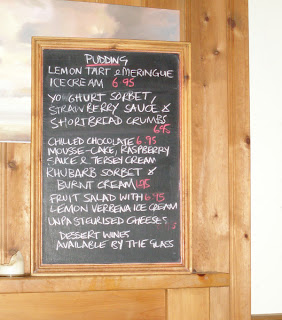 PUDDING
LEMON TART & MERINGUE
ICECREAM 6.95
YOGHURT SORBET,
STRAWBERRY SAUCE &
SHORTBREAD CRUMBS
6.95
CHILLED CHOCOLATE 6.95
MOUSSE-CAKE, RASPBERRY
SAUCE & JERSEY CREAM
RHUBARB SORBET &
BURNT CREAM
FRUIT SALAD WITH 6.95
LEMON VERBENA ICE CREAM
UNPASTEURISED CHEESES
DESSERT WINES
AVAILABLE BY THE GLASS